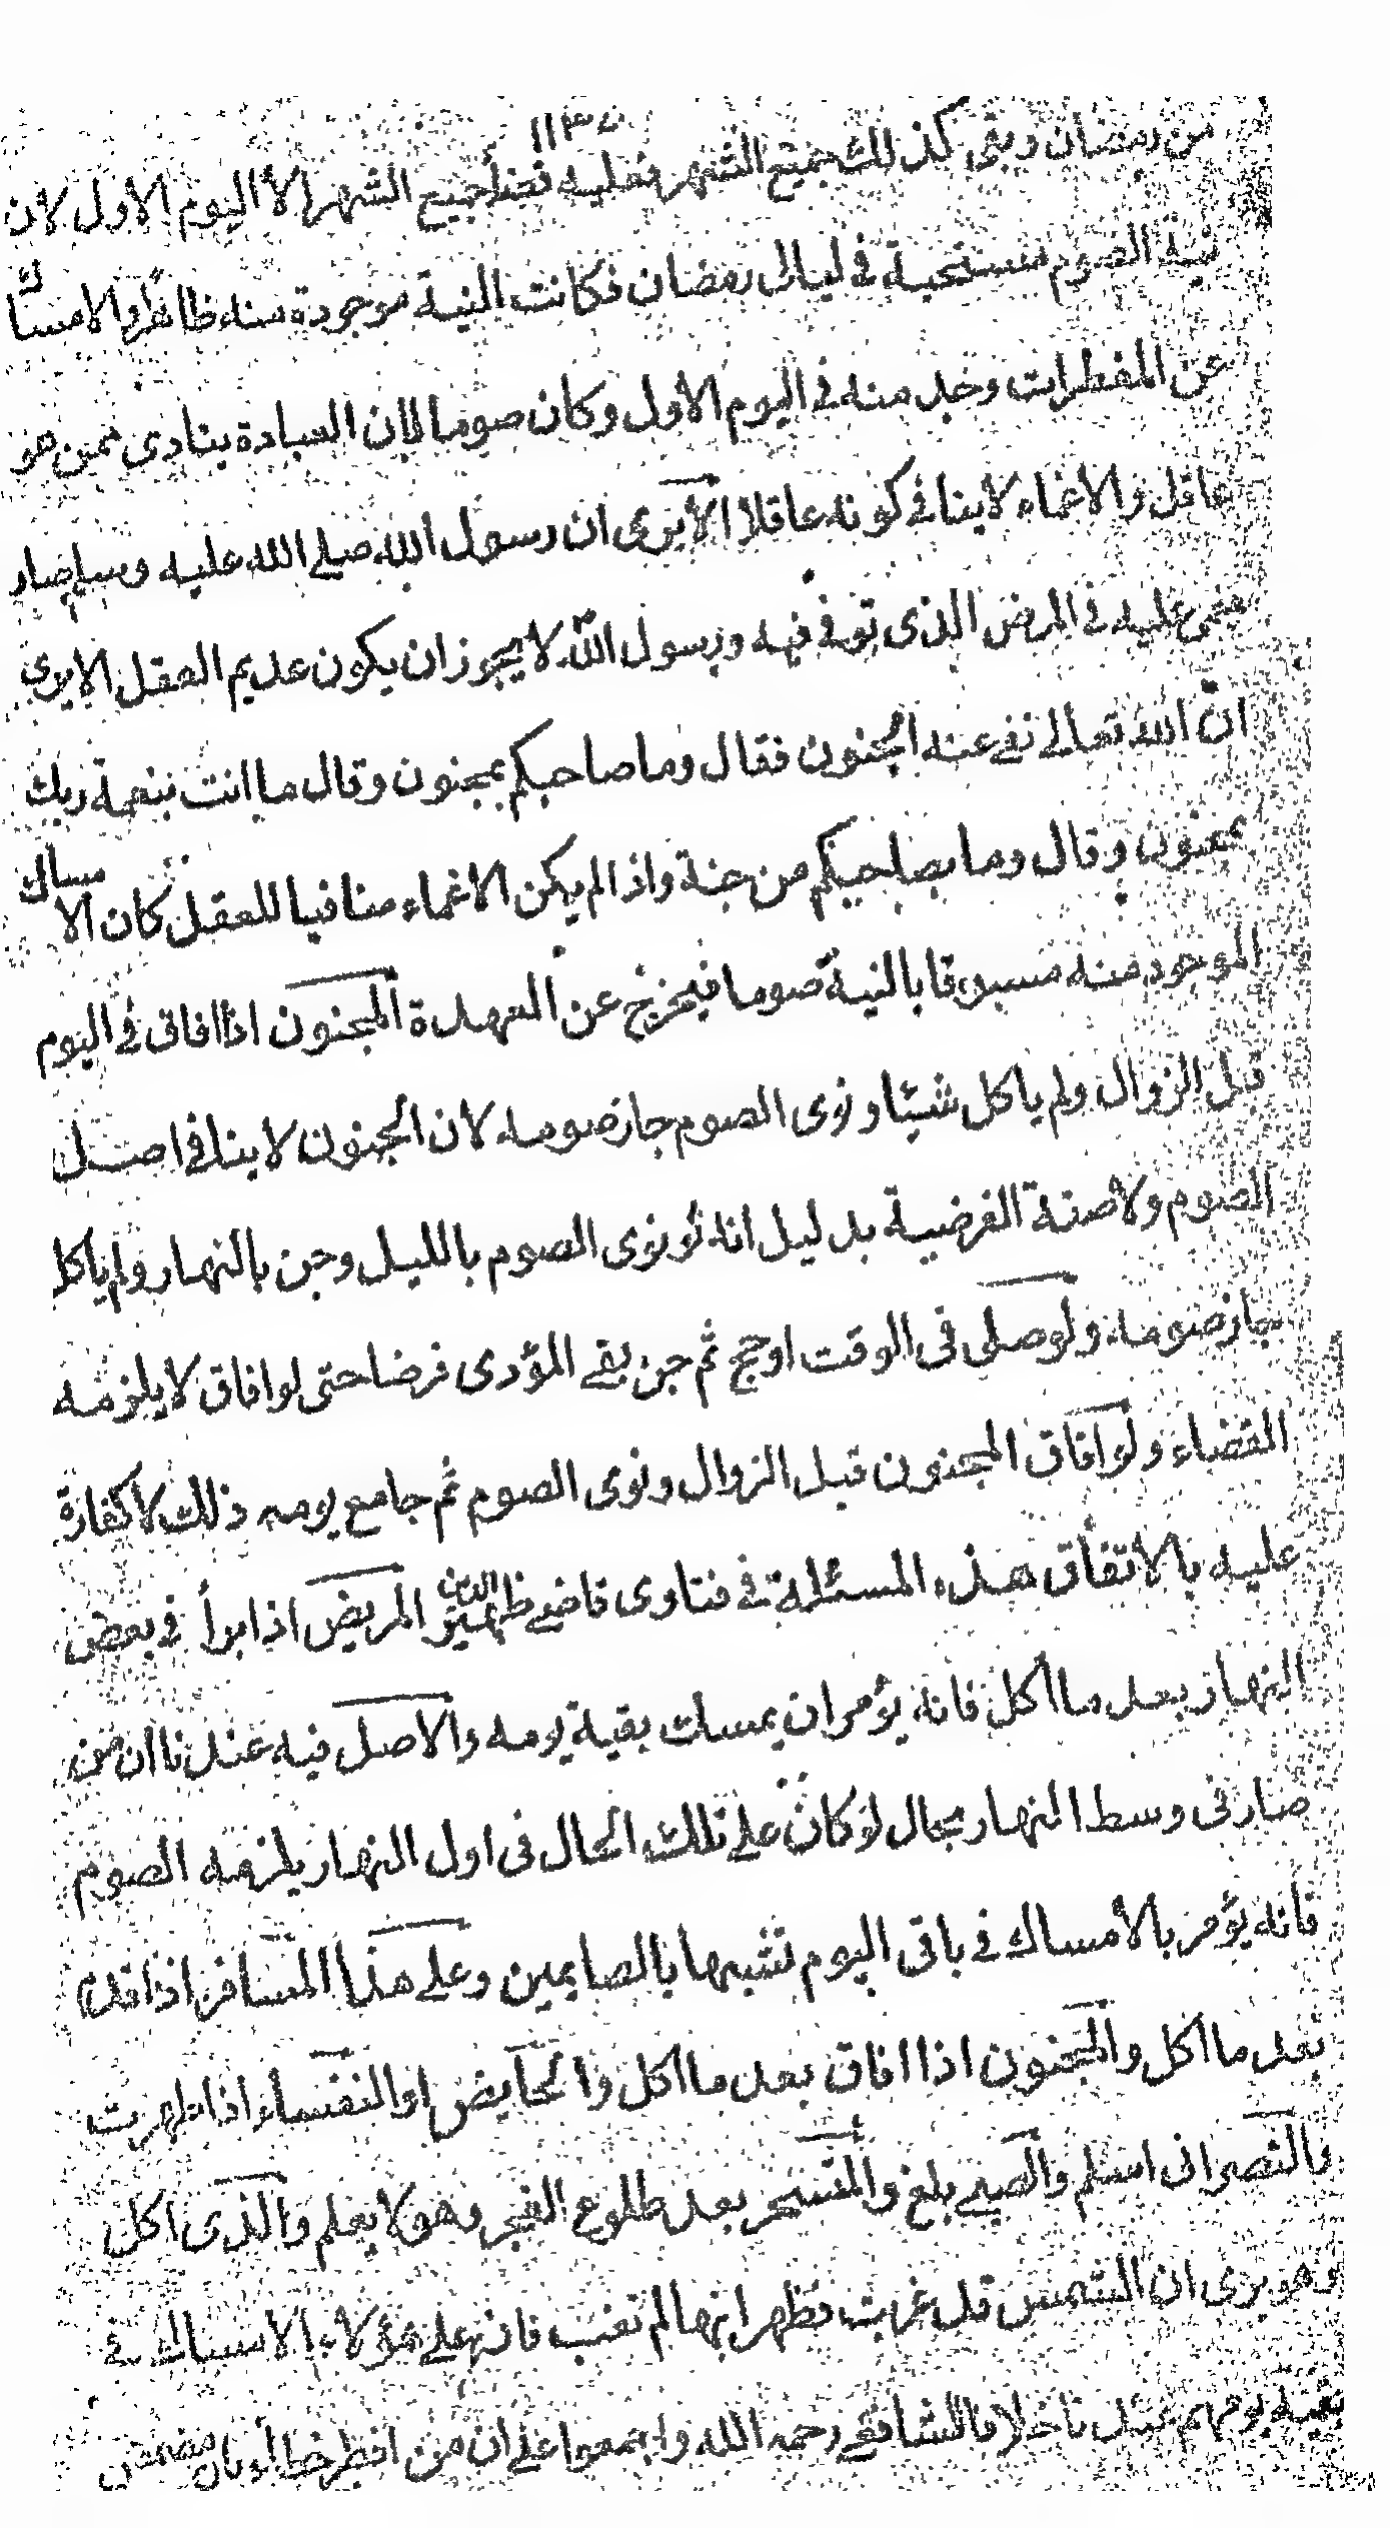 من رمضان وبقى كذلك جميع الشهر فعليه قضا جميع الشهر الا اليوم الاول لان
نية الصوم مستحبة في ليالى رمضان فكانت النية موجودة منه ظاهرا والامساك
عن المفطرات وجد منه في اليوم الاول وكان صوما لان العبادة يتادى ممن هو
عاقل والاغماء لاينافي كونه عاقلا الايرى ان رسول الله صلى الله عليه وسلم صار
مغمى عليه في المرض الذى توفي فيه ورسول الله لايجوز ان يكون عديم العقل الايرى
انّ الله تعالى نفى عنه الجنون فقال وما صاحبكم بمجنون وقال ما انت بنعمة ربك
بمجنون وقال وما بصاحبكم من جنة واذا لم يكن الاغماء منافيا للعقل كان الامساك
الموجود منه مسبوقا بالنية صوما فيخرج عن العهدة المجنون اذا افاق في اليوم
قبل الزوال ولم ياكل شيئا ونوى الصوم جاز صومه لان الجنون لاينافي اصل
الصوم ولا صفة الفرضية بدليل انه لو نوى الصوم بالليل وجن بالنهار ولم ياكل
جاز صومه ولو صلى فى الوقت اوحج ثم جن بقي المؤدى فرضا حتى لو افاق لايلزمه
القضاء ولو افاق المجنون قبل الزوال ونوى الصوم ثم جامع يومه ذلك لاكفارة
عليه بالاتفاق هذه المسئلة في فتاوى قاضى ظهير الدين المريض اذا ابرأ في بعض
النهار بعد ما اكل فانه يؤمر ان يمسك بقية يومه والاصل فيه عندنا ان من
صار فى وسط النهار بحال لوكان على تلك الحال فى اول النهار يلزمه الصوم
فانه يؤمر بالامساك في باقى اليوم تشبها بالصايمين وعلى هذا المسافر اذا قدم
بعد ما اكل والمجنون اذا افاق بعد ما اكل والحايض او النفساء اذا طهرت
والنصرانى اسلم والصبي بلغ والمتسحر بعد طلوع الفجر وهو لايعلم والذى اكل
وهو يرى ان الشمس قد غربت فظهر انها لم تغب فانه على هؤلاء الامساك في
بقية يومهم عندنا خلافا للشافعي رحمه الله واجمعوا على ان من افطر خطأ بان تمضمض